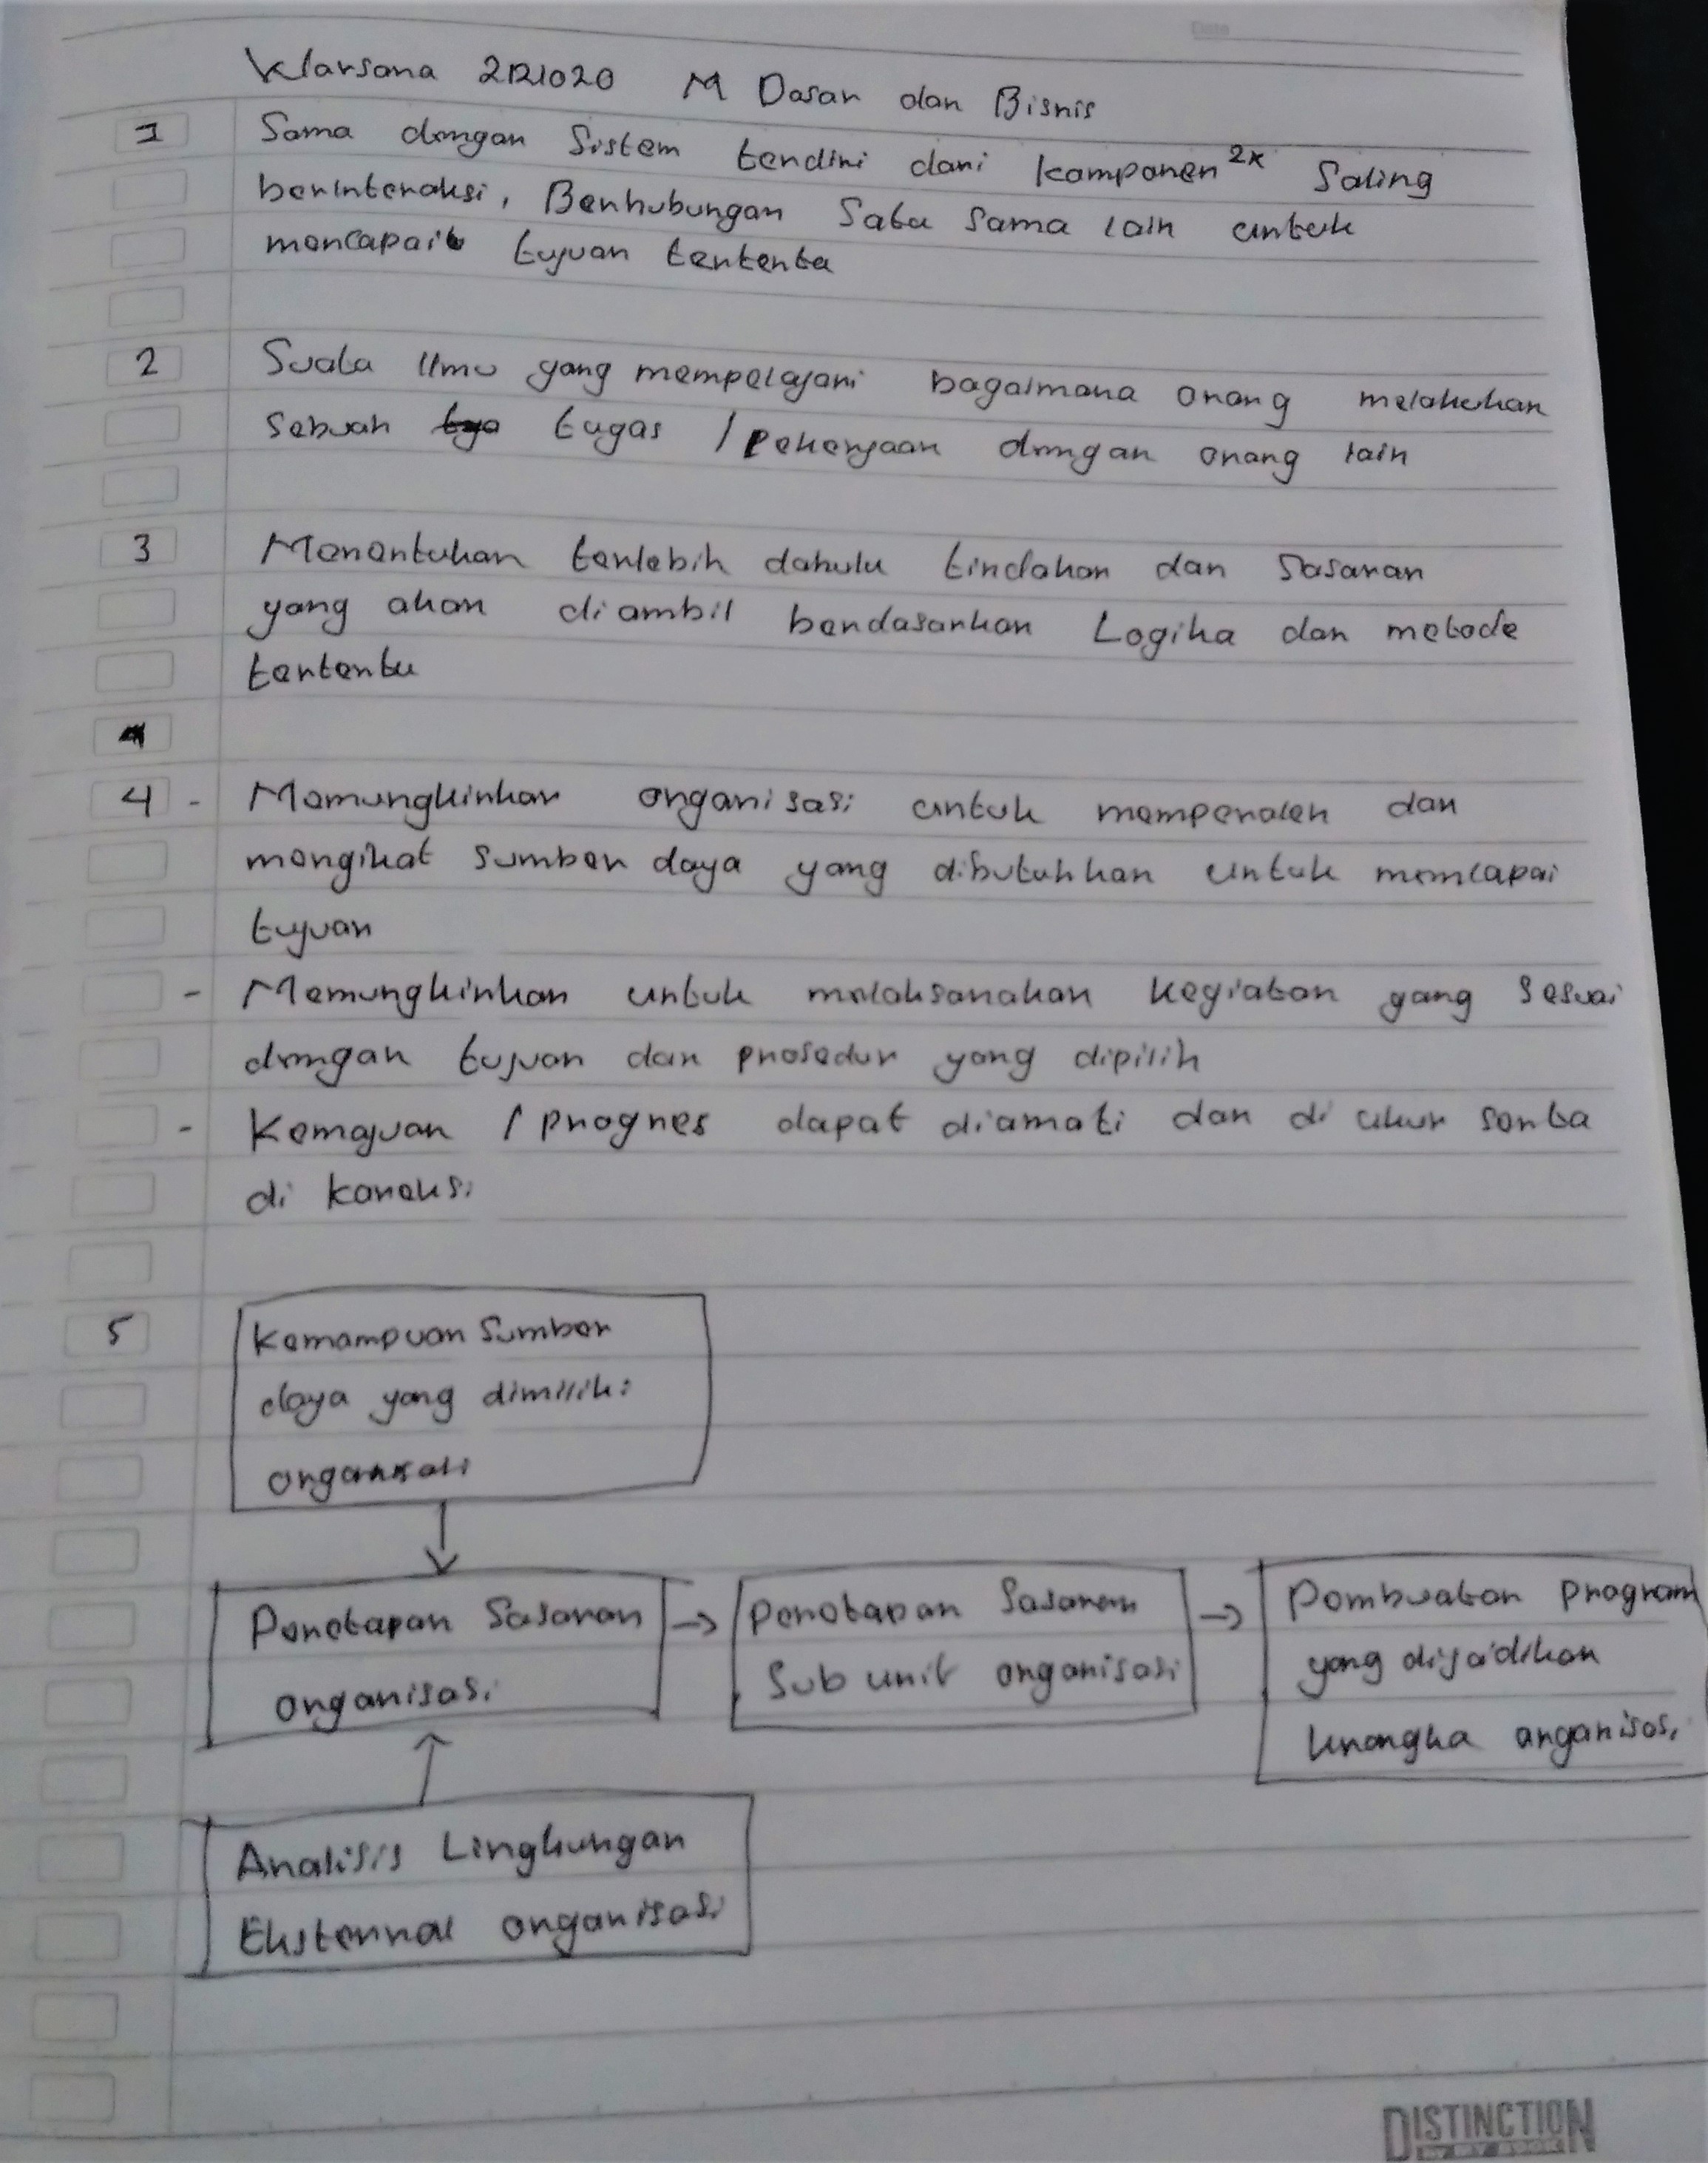 Date
Klarsana 2121020 M Dasar dan Bisnis
1 Sama dengan Sistem terdiri dari komponen 2x Saling
berinteraksi, Berhubungan Satu Sama lain untuk
mencapai tujuan tertentu
2 Suatu Ilmu yang mempelajari bagaimana orang melakukan
Sebuah tugas / Pekerjaan dengan orang lain
3 Menentukan terlebih dahulu tindakan dan Sasaran
yang akan di ambil berdasarkan Logika dan metode
tertentu
4 - Memungkinkan organisasi untuk memperoleh dan
mengikat sumber daya yang dibutuhkan untuk mencapai
tujuan
- Memungkinkan untuk melaksanakan kegiatan yang Sesuai
dengan tujuan dan prosedur yang dipilih
- Kemajuan / progres dapat diamati dan di ukur serta
di koreksi
5 Kemampuan Sumber
daya yang dimiliki
organisasi
Penetapan Sasaran
organisasi
Penetapan Sasaran
Sub unit organisasi
Pembuatan Program
yang dijadikan
kerangka organisasi
Analisis Lingkungan
Eksternal organisasi
DISTINCTION